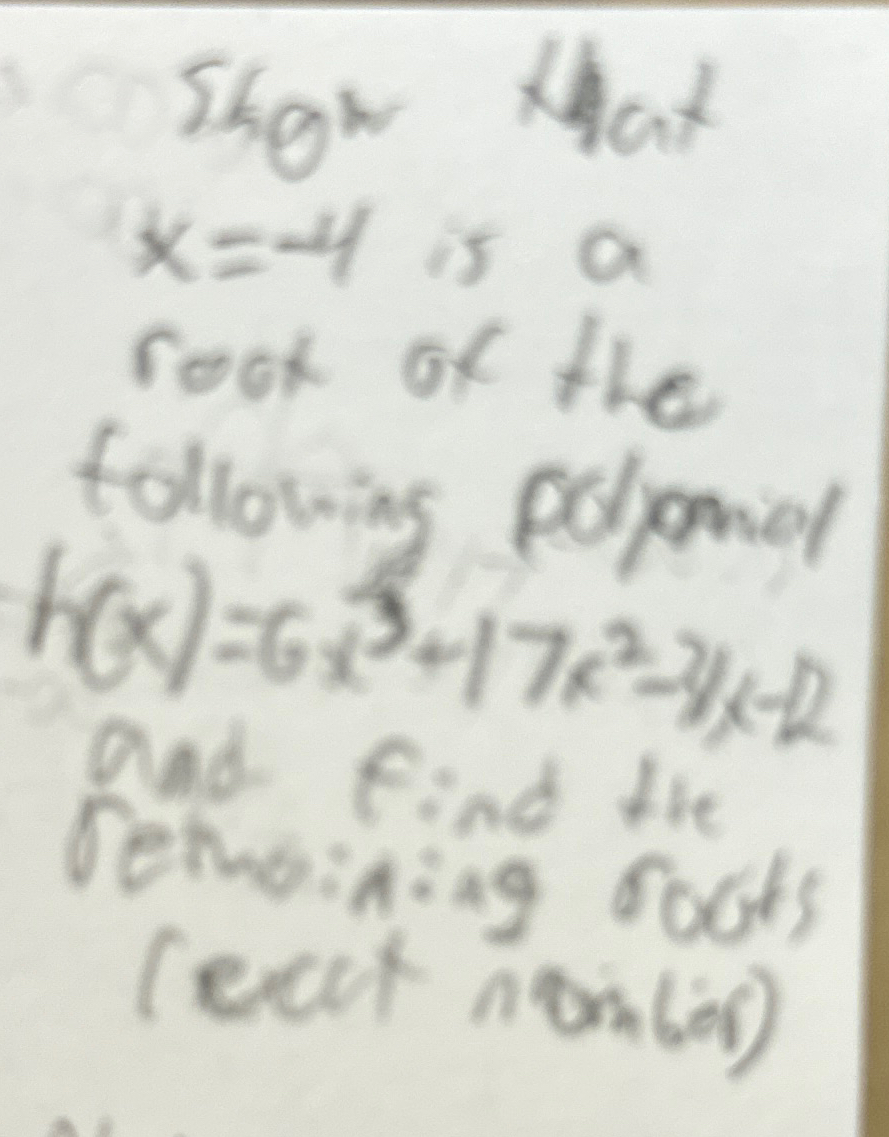 Show that
x=-4 is a
root of the
following polynomial
h(x)=6x³+17x²-31x-12
and find the
remaining roots
(exact number)